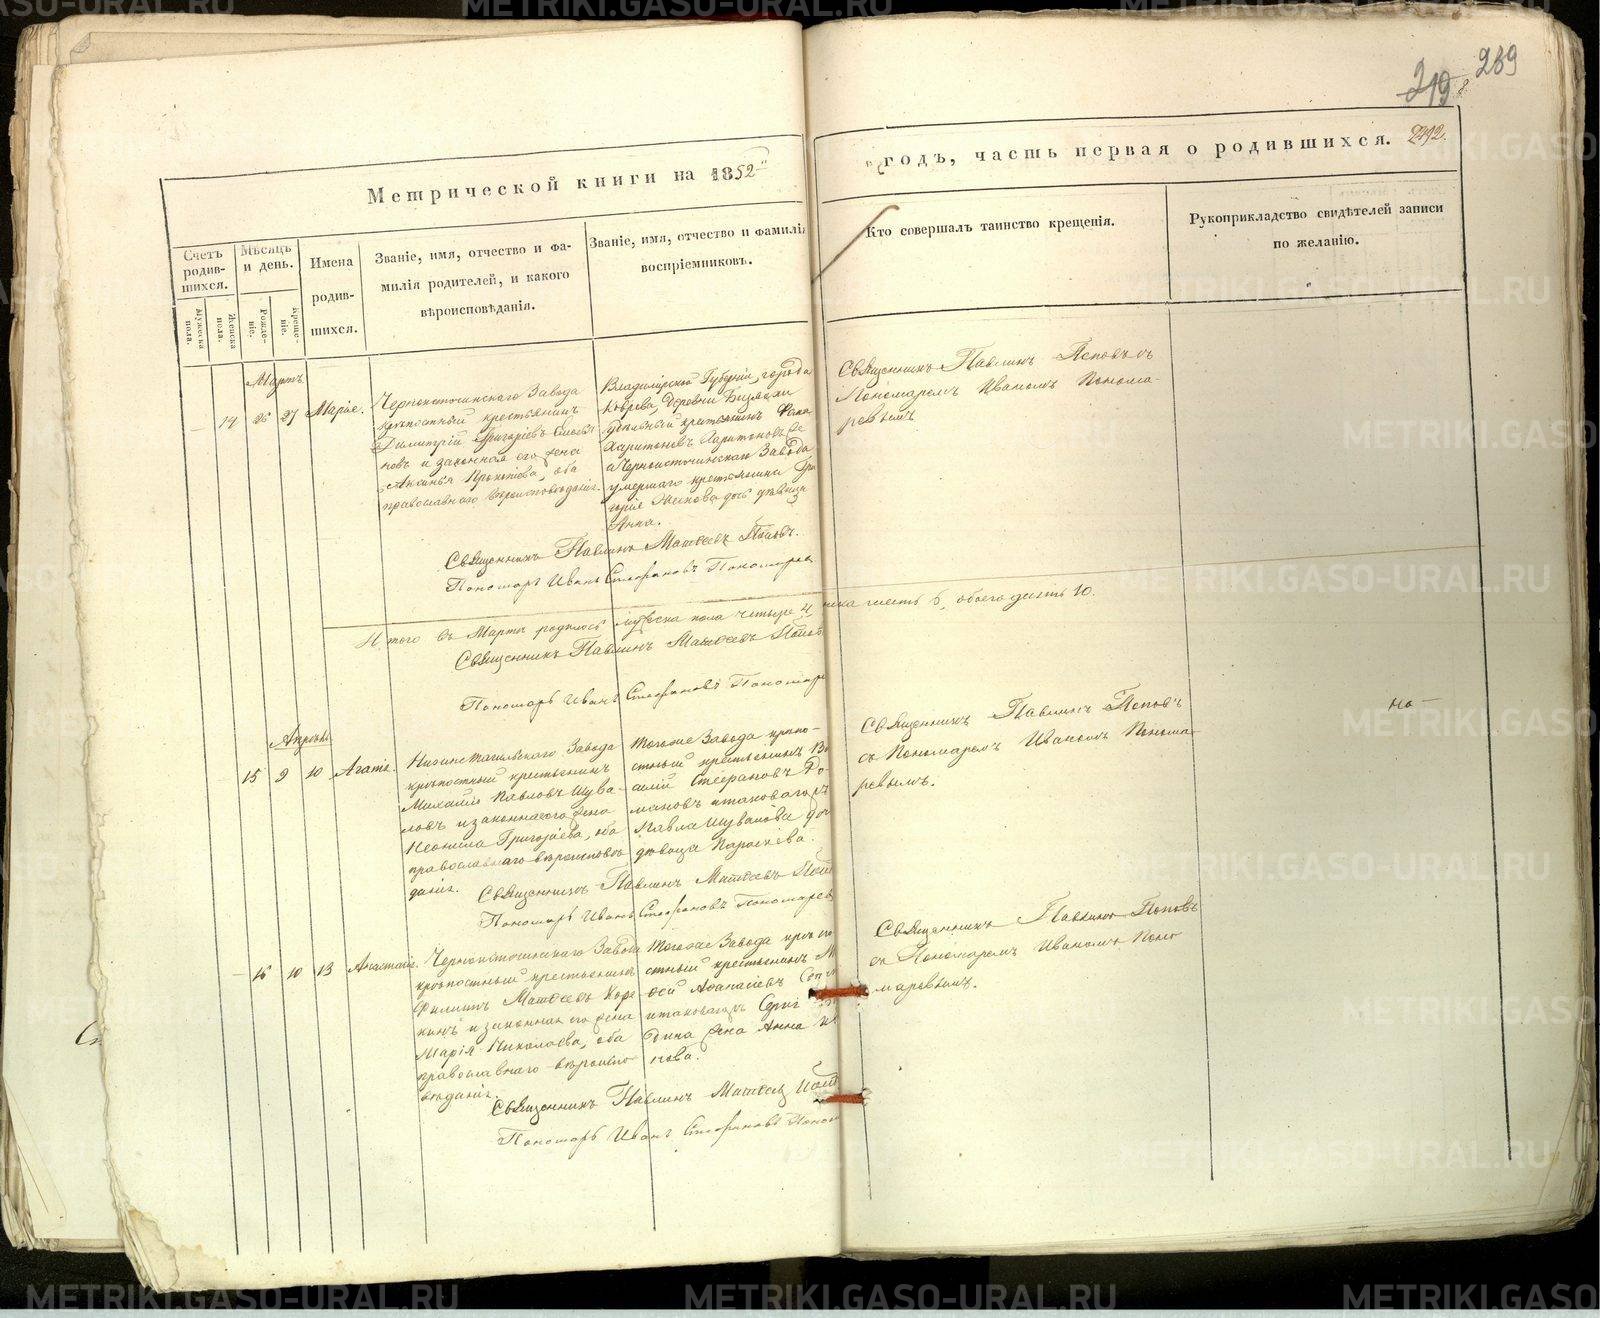 289
219
2492.
Метрической книги на 1852 годъ, часть первая о родившихся.
Счетъ родив-шихся.
Мужеска пола.
Женска пола.
Мѣсяцъ и день.
Рожде-ніе.
Креще-ніе.
Имена родив-шихся.
Званіе, имя, отчество и фа-
милія родителей, и какого
вѣроисповѣданія.
Званіе, имя, отчество и фамилія
воспріемниковъ.
Кто совершалъ таинство крещенія.
Рукоприкладство свидѣтелей записи
по желанію.
Мартъ
14 26 27 Марія.
Черноисточинскаго Завода
крѣпостный крестьянинъ
Димитрій Григорьевъ
новъ и законная его жена
оба
православнаго вѣроисповѣданія.
Владимірской Губерніи, города
Коврова, Деревни
крестьянинъ
Харитоновъ Харитоновъ
а Черноисточинскаго Завода
умершаго крестьянина Гри
горія дочь дѣвица
Анна.
Священникъ Павлинъ Поповъ съ
Пономаремъ Иваномъ Понома-
ревымъ.
Священникъ Павлинъ Матвеевъ Поповъ.
Пономарь Иванъ Стефановъ Пономарев
Итого въ Мартѣ родилось мужеска пола четыре 4, женска шесть 6, обоего десять 10.
Священникъ Павлинъ Матвеевъ Попов
Пономарь Иванъ Стефановъ Пономаре
Апрѣль
15 9 10 Агаѳія.
Нижнетагильскаго Завода
крѣпостный крестьянинъ
Михаилъ Павловъ Шува-
ловъ и законная его жена
Неонила Григорьева, оба
православнаго вѣроисповѣ
данія.
Тогоже Завода крѣпо-
стный крестьянинъ Ва
силій Стефановъ Ро-
мановъ и таковаго ж
Павла Шувалова доч
дѣвица Параскева.
Священникъ Павлинъ Поповъ
съ Пономаремъ Иваномъ Понома-
ревымъ.
но
Священникъ Павлинъ Матвеевъ Попо
Пономарь Иванъ Стефановъ Пономарев
16 10 13 Анастасія.
Черноисточинскаго Завода
крѣпостный крестьянинъ
Филиппъ Матвеевъ Коре
кинъ и законная его жена
Марія Николаева, оба
православнаго вѣроиспо
вѣданія.
Тогоже Завода крѣпо
стный крестьянинъ М
сей Аѳанасіевъ
и таковагожъ Сергі
дина жена Анна
нова.
Священникъ Павлинъ Поповъ
съ Пономаремъ Иваномъ Поно
маревымъ.
Священникъ Павлинъ Матвеевъ Попо
Пономарь Иванъ Стефановъ Поном
METRIKI.GASO-URAL.RU